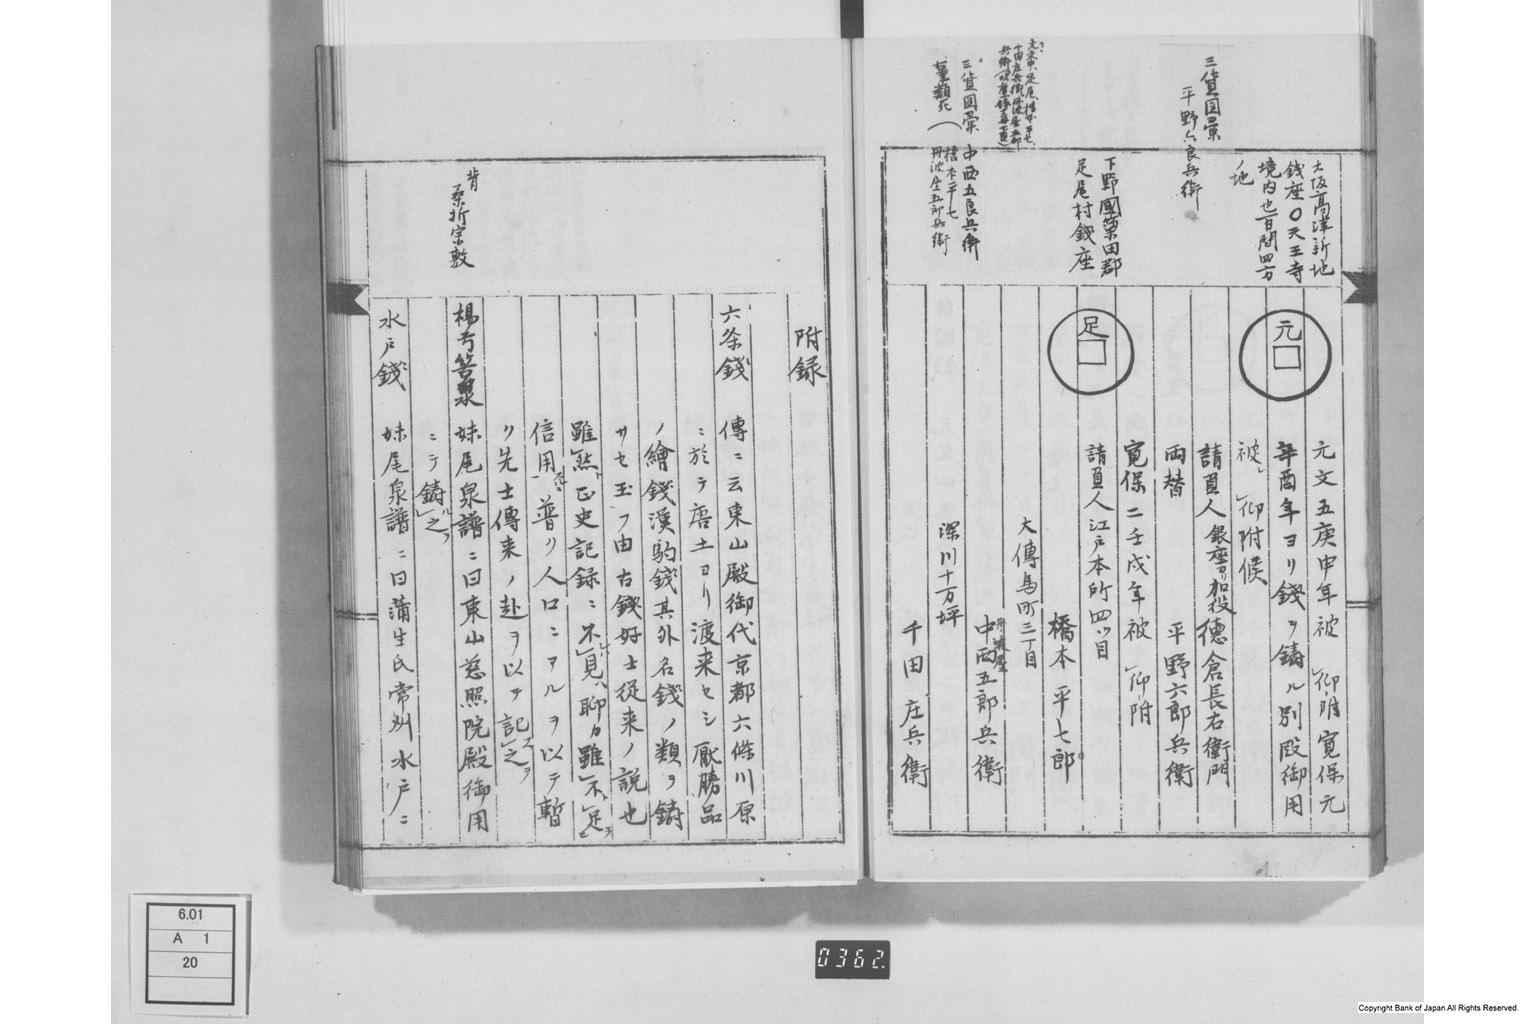 三貨図彙
平野六良兵衛
大坂高津新地
銭座〇天王寺
境内也百間四方
ノ地
元
元文五庚申年被仰附寛保元
辛酉年ヨリ銭ヲ鋳ル別段御用
被仰附候
請負人銀座ヨリ加役徳倉長右衛門
両替 平野六郎兵衛
下野國簗田郡
足尾村銭座
足
寛保二壬戌年被仰附
請負人江戸本所四ツ目
橋本平七郎
大傳馬町三丁目
丹波屋
中西五郎兵衛
深川十万坪
千田庄兵衛
三貨図彙 中西五良兵衛
橋本平七
丹波屋五郎兵衛
附録
六条銭 傳ニ云東山殿御代京都六條川原
ニ於テ唐土ヨリ渡来セシ厭勝品
ノ繪銭漢駒銭其外名銭ノ類ヲ鋳
サセ玉フ由古銭好士従来ノ説也
雖然正史記録ニ不見聊カ雖不足
信用普ク人口ニアルヲ以テ暫
ク先士傳来ノ赴ヲ以テ記之
背
桑折宗敦
楊弓筈泉 妹尾泉譜ニ曰東山慈照院殿御用
ニテ鋳之
水戸銭 妹尾泉譜ニ曰蒲生氏常州水戸ニ
6.01
A 1
20
0362.
Copyright Bank of Japan All Rights Reserved.